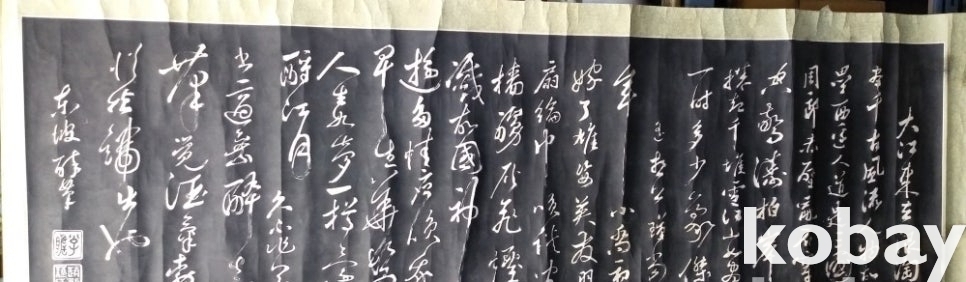 大江東去浪淘
千古風流人物
壘西邊人道是
周郎赤壁亂
驚濤拍
捲起千堆雪江山如
一時多少豪傑
遙想公瑾當
年 小喬初
嫁了雄姿英發羽
扇綸巾談笑
檣艣灰飛煙
滅故國神
遊多情應笑我
早生華髮
人生如夢一樽還
酹江月
久不作草
書適乘醉走
筆覺酒氣勃
從指端出也
東坡醉筆
kobay